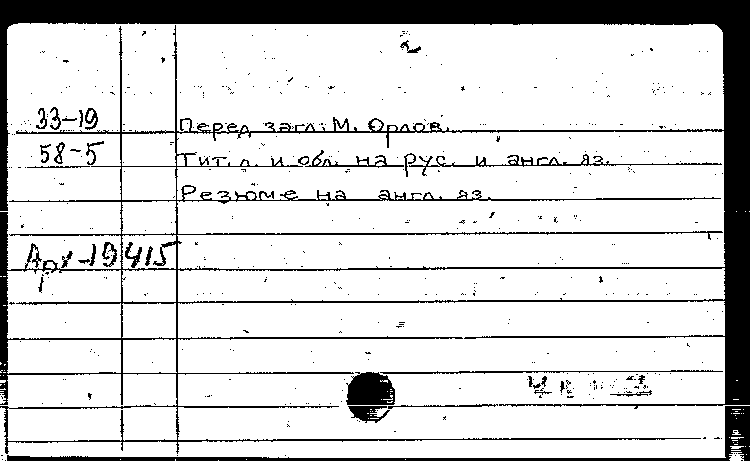 2
33-19
Перед загл: М. Орлов.
58-5
Тит. л. и обл. на рус. и англ. яз.
Резюме на англ. яз.
Арх-19415